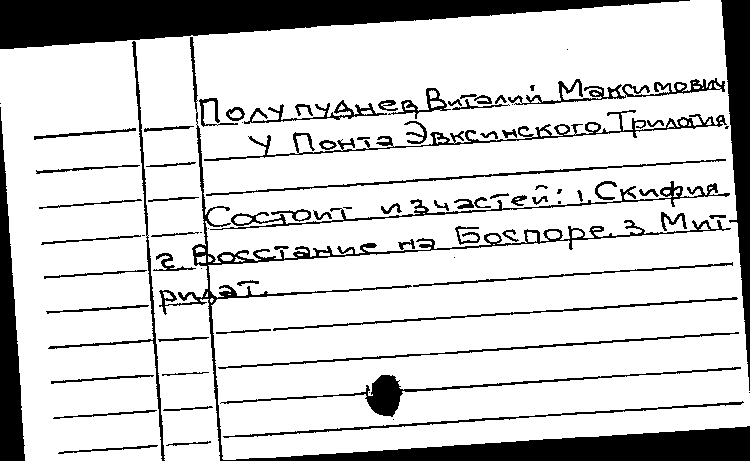 Полупуднев, Виталий Максимович
У Понта Эвксинского. Трилогия.
Состоит из частей: 1. Скифия.
2. Восстание на Боспоре. 3. Мит-
ридат.